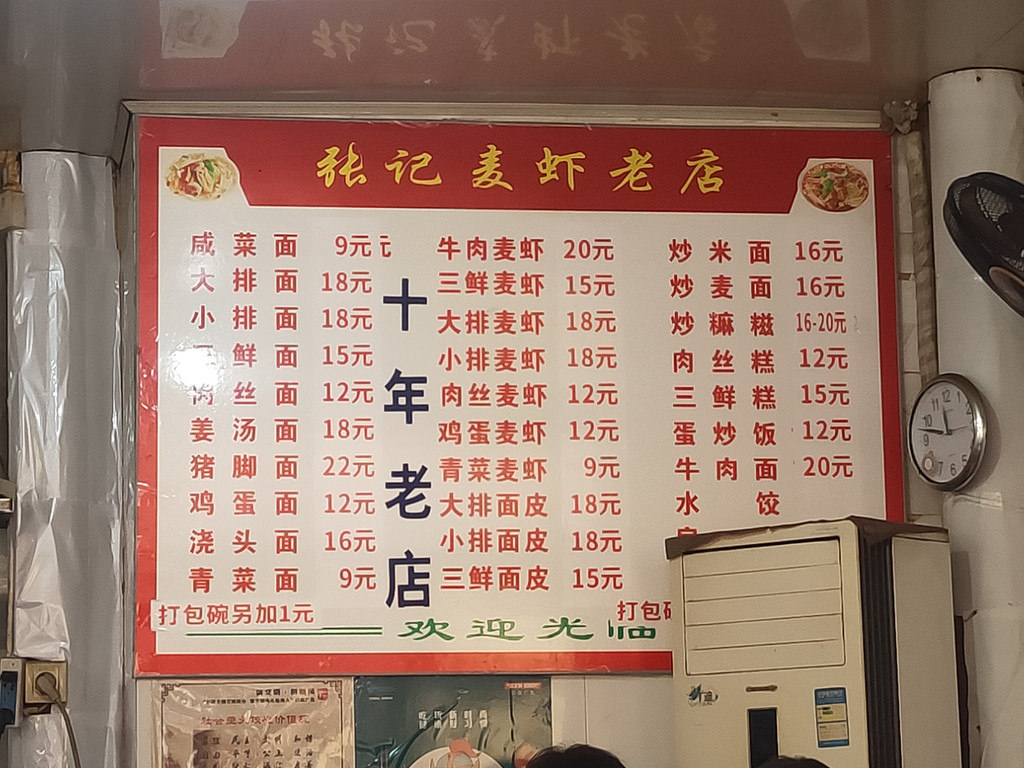 张记麦虾老店
咸菜面 9元
大排面 18元
小排面 18元
鲜面 15元
肉丝面 12元
姜汤面 18元
猪脚面 22元
鸡蛋面 12元
浇头面 16元
青菜面 9元
十年老店
牛肉麦虾 20元
三鲜麦虾 15元
大排麦虾 18元
小排麦虾 18元
肉丝麦虾 12元
鸡蛋麦虾 12元
青菜麦虾 9元
大排面皮 18元
小排面皮 18元
三鲜面皮 15元
炒米面 16元
炒麦面 16元
炒麻糍 16-20元
肉丝糕 12元
三鲜糕 15元
蛋炒饭 12元
牛肉面 20元
水饺
打包碗另加1元
打包
欢迎光临
社会主义核心价值观